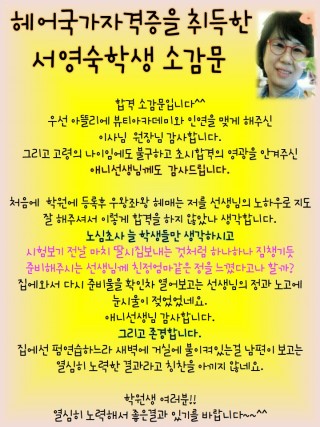 헤어국가자격증을 취득한
서영숙학생 소감문
합격 소감문입니다^^
우선 아뜰리에 뷰티아카데미와 인연을 맺게 해주신
이사님 원장님 감사합니다.
그리고 고령의 나이임에도 불구하고 초시합격의 영광을 안겨주신
애니선생님께도 감사드립니다.
처음에 학원에 등록후 우왕좌왕 헤매는 저를 선생님의 노하우로 지도
잘 해주셔서 이렇게 합격을 하지 않았나 생각합니다.
노심초사 늘 학생들만 생각하시고
시험보기 전날 마치 딸시집보내는 것처럼 하나하나 짐챙기듯
준비해주시는 선생님께 친정엄마같은 정을 느꼈다고나 할까?
집에와서 다시 준비물을 확인차 열어보고는 선생님의 정과 노고에
눈시울이 젖었었네요.
애니선생님 감사합니다.
그리고 존경합니다.
집에선 펌연습하느라 새벽에 거실에 불이켜있는걸 남편이 보고는
열심히 노력한 결과라고 칭찬을 아끼지 않네요.
학원생 여러분!!
열심히 노력해서 좋은결과 있기를 바랍니다~~^^